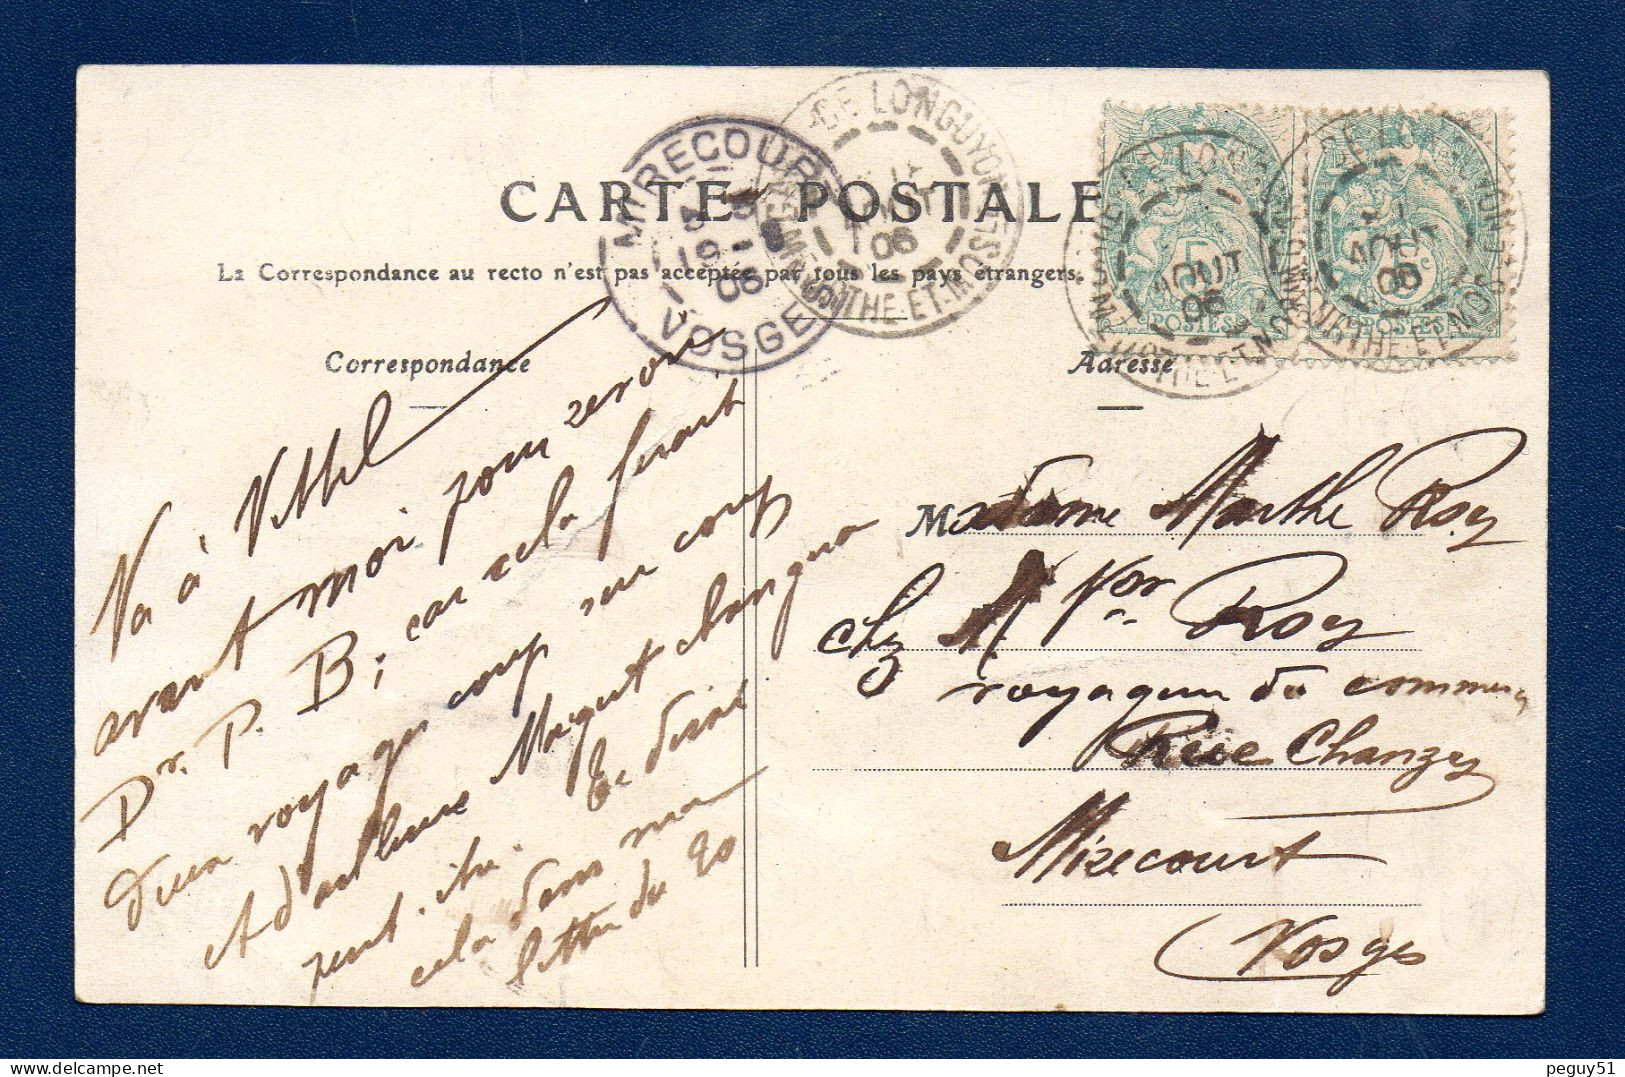 CARTE POSTALE
La Correspondance au recto n'est pas acceptée par tous les pays étrangers.
Correspondance
Adresse
MIRECOURT
19 06
VOSGES
LONGUYON
MEURTHE-ET-MOSELLE
AOUT
06
5
POSTES
AOUT
06
5
POSTES
Va à Vittel
avant moi pour
Dr. P. B; car cela ferait
voyage coup sur coup
D'ailleurs Margut changera
peut-être.
cela dans ma
lettre du 20
Madame Marthe Roy
chz M Vor Roy
voyageur du commerce
Rue Chanzy
Mirecourt
Vosges
peguy51